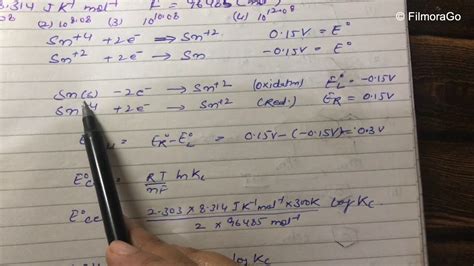 © FilmoraGo
8.314 J K⁻¹ mol⁻¹ F = 96485 mol⁻¹
(2) 10 (3) 10^10.08 (4) 10^12.08
Sn+4 + 2e⁻ → Sn+2 0.15V = E°
Sn+2 + 2e⁻ → Sn -0.15V = E°
Sn(s) - 2e⁻ → Sn+2 (oxidatn) E°L = -0.15V
Sn+4 + 2e⁻ → Sn+2 (Red.) E°R = 0.15V
= E°R - E°L = 0.15V - (-0.15V) = 0.3V
E°C = RT/nF ln Kc
E°Cell = 2.303 × 8.314 J K⁻¹ mol⁻¹ × 300K / 2 × 96485 mol⁻¹ log Kc
log Kc